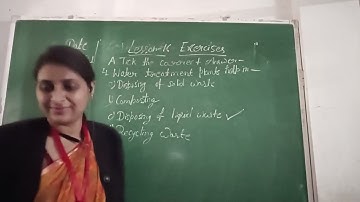 Date
Lesson-4 Exercises
A Tick the correct answer-
1. Water treatment plants help in -
a) Disposing of solid waste
b) Composting
c) Disposing of liquid waste ✓
Recycling waste